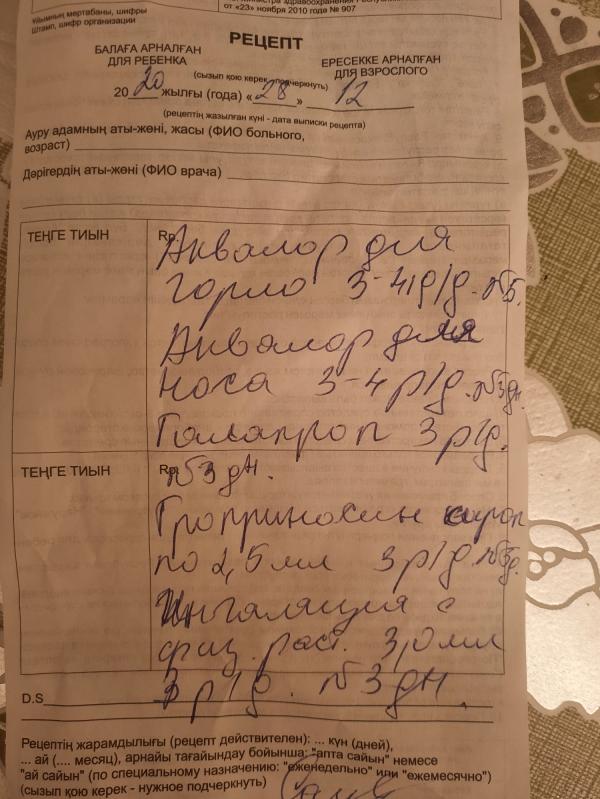 Ұйымның мөртабаны, шифры
Штамп, шифр организации
от «23» ноября 2010 года № 907
РЕЦЕПТ
БАЛАҒА АРНАЛҒАН
ДЛЯ РЕБЕНКА
ЕРЕСЕККЕ АРНАЛҒАН
ДЛЯ ВЗРОСЛОГО
(сызып қою керек - подчеркнуть)
20 20 жылғы (года) « 28 » 12
(рецептің жазылған күні - дата выписки рецепта)
Ауру адамның аты-жөні, жасы (ФИО больного,
возраст)
Дәрігердің аты-жөні (ФИО врача)
ТЕҢГЕ ТИЫН
Rp.
Аквалор для
горло 3-4 р/д. №5.
Аквалор для
носа 3-4 р/д. №3 дн.
3 р/д.
ТЕҢГЕ ТИЫН
Rp.
№3 дн.
Гроприносин сироп
по 2,5 мл 3 р/д №5 д.
Ингаляция с
физ. раст. 3,0 мл
3 р/д. №3 дн.
D.S
Рецептің жарамдылығы (рецепт действителен): ... күн (дней),
... ай (.... месяц), арнайы тағайындау бойынша: "апта сайын" немесе
"ай сайын" (по специальному назначению: "еженедельно" или "ежемесячно")
(сызып қою керек - нужное подчеркнуть)